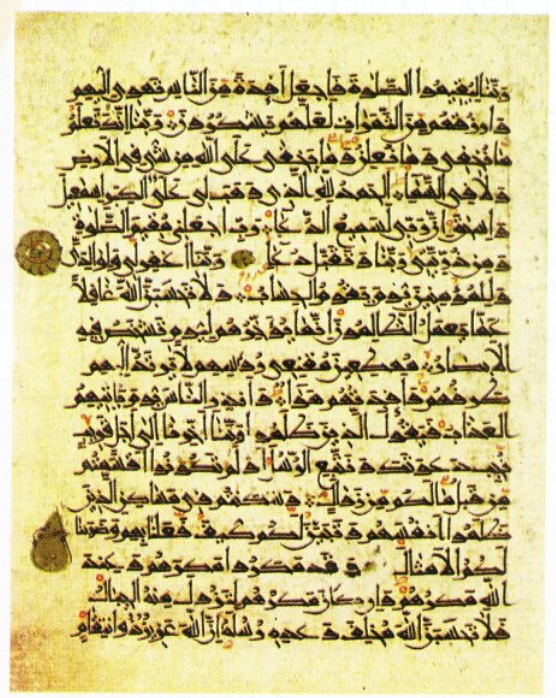 ربنا ليقيموا الصلوة فاجعل افئدة من الناس تهوي اليهم
وارزقهم من الثمرات لعلهم يشكرون ربنا انك تعلم
ما نخفي وما نعلن وما يخفى على الله من شيء في الارض
ولا في السماء الحمد لله الذي وهب لي على الكبر اسمعيل
واسحق ان ربي لسميع الدعاء رب اجعلني مقيم الصلوة
ومن ذريتي ربنا وتقبل دعاء ربنا اغفر لي ولوالدي
وللمؤمنين يوم يقوم الحساب ولا تحسبن الله غافلا
عما يعمل الظالمون انما يؤخرهم ليوم تشخص فيه
الابصار مهطعين مقنعي رءوسهم لا يرتد اليهم
طرفهم وافئدتهم هواء وانذر الناس يوم ياتيهم
العذاب فيقول الذين ظلموا ربنا اخرنا الى اجل قريب
نجب دعوتك ونتبع الرسل اولم تكونوا اقسمتم
من قبل ما لكم من زوال وسكنتم في مساكن الذين
ظلموا انفسهم وتبين لكم كيف فعلنا بهم وضربنا
لكم الامثال وقد مكروا مكرهم وعند
الله مكرهم وان كان مكرهم لتزول منه الجبال
فلا تحسبن الله مخلف وعده رسله ان الله عزيز ذو انتقام